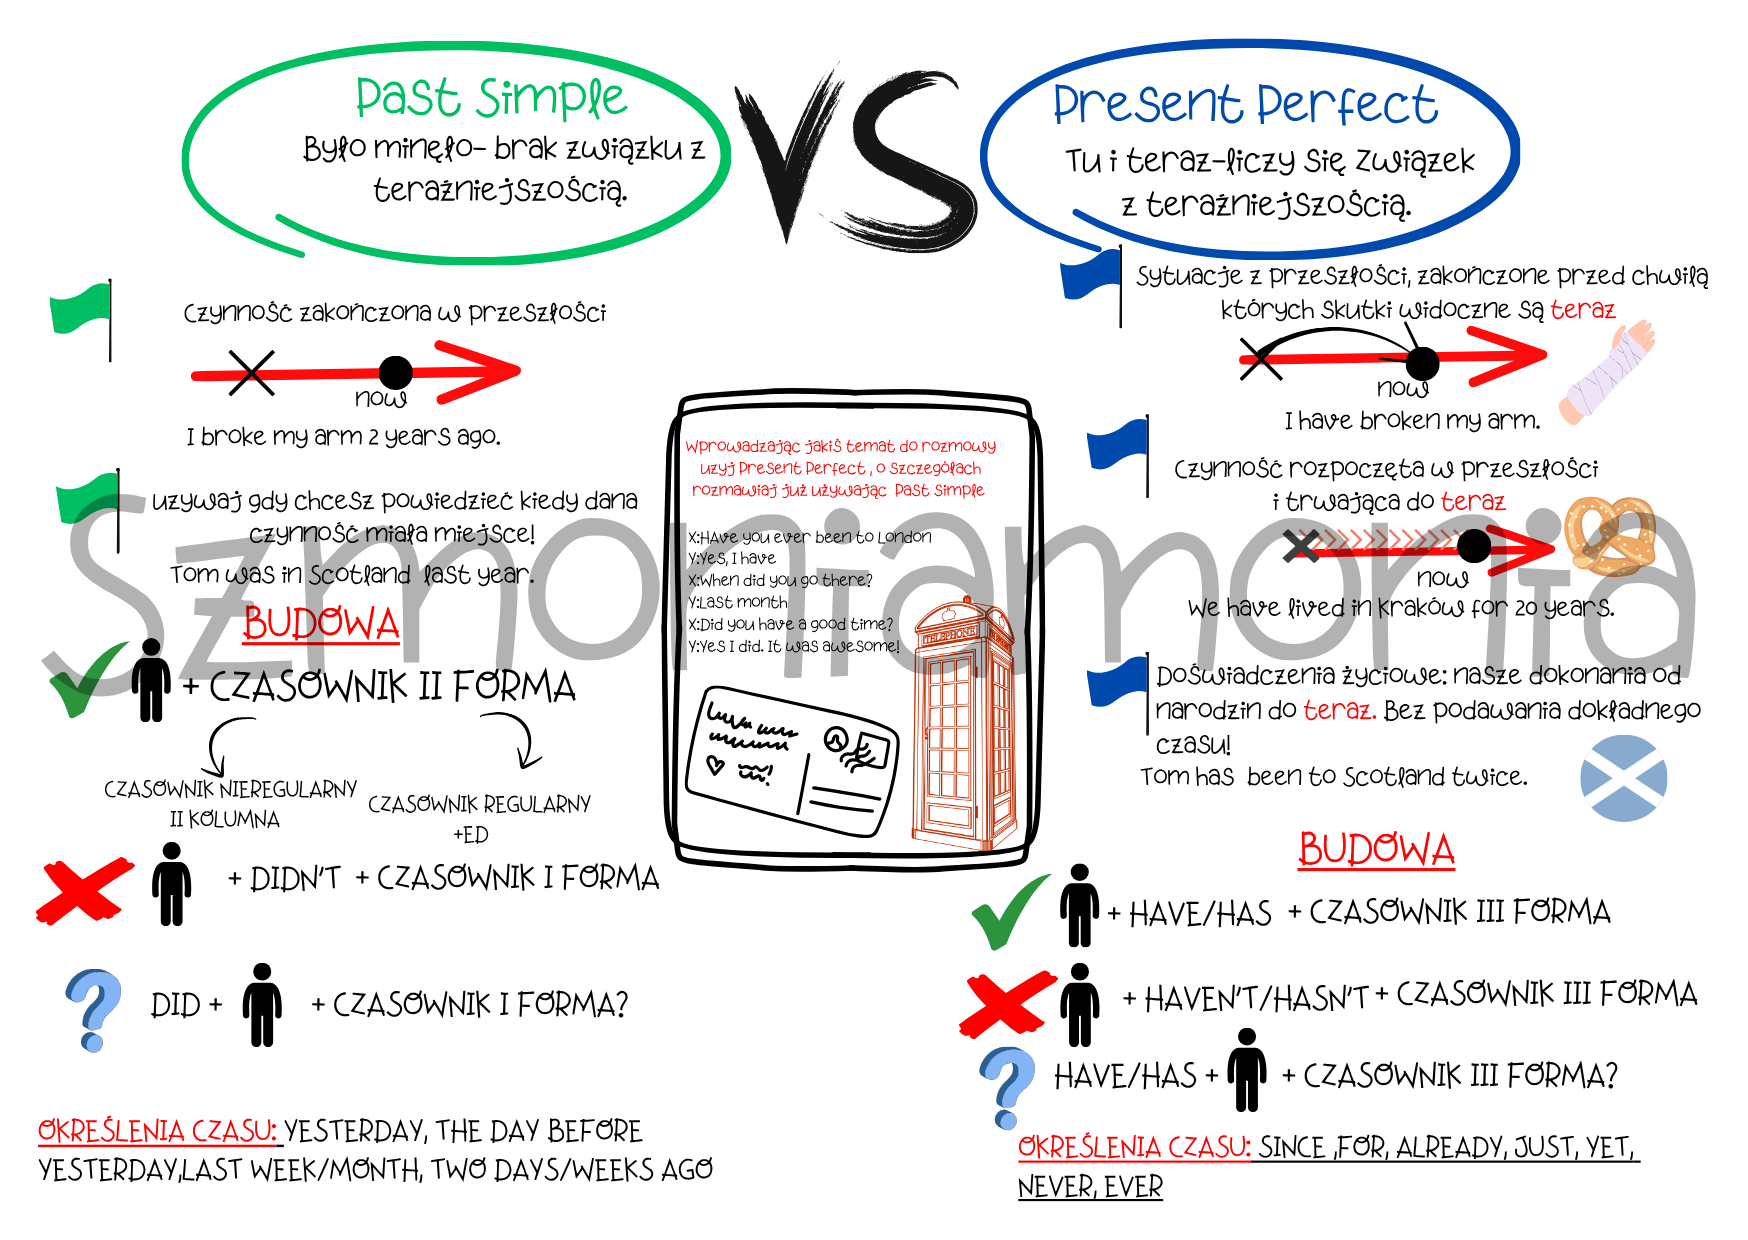 Past Simple
Było minęło- brak związku z
teraźniejszością.
Czynność zakończona w przeszłości
now
I broke my arm 2 years ago.
używaj gdy chcesz powiedzieć kiedy dana
czynność miała miejsce!
Tom was in Scotland last year.
BUDOWA
+ CZASOWNIK II FORMA
CZASOWNIK NIEREGULARNY
II KOLUMNA
CZASOWNIK REGULARNY
+ED
+ DIDN'T + CZASOWNIK I FORMA
DID + + CZASOWNIK I FORMA?
OKREŚLENIA CZASU: YESTERDAY, THE DAY BEFORE
YESTERDAY,LAST WEEK/MONTH, TWO DAYS/WEEKS AGO
VS
Wprowadzając jakiś temat do rozmowy
uzyj Present Perfect , o szczegółach
rozmawiaj już używając Past Simple
X:HAve you ever been to London
Y:Yes, I have
X:When did you go there?
Y:Last month
X:Did you have a good time?
Y:Yes I did. It was awesome!
TELEPHONE
Present Perfect
Tu i teraz-liczy się związek
z teraźniejszością.
Sytuacje z przeszłości, zakończone przed chwilą
których skutki widoczne są teraz
now
I have broken my arm.
Czynność rozpoczęta w przeszłości
i trwająca do teraz
now
We have lived in Kraków for 20 years.
Doświadczenia życiowe: nasze dokonania od
narodzin do teraz. Bez podawania dokładnego
czasu!
Tom has been to Scotland twice.
BUDOWA
+ HAVE/HAS + CZASOWNIK III FORMA
+ HAVEN'T/HASN'T + CZASOWNIK III FORMA
HAVE/HAS + + CZASOWNIK III FORMA?
OKREŚLENIA CZASU: SINCE ,FOR, ALREADY, JUST, YET,
NEVER, EVER
Szmoniamonia